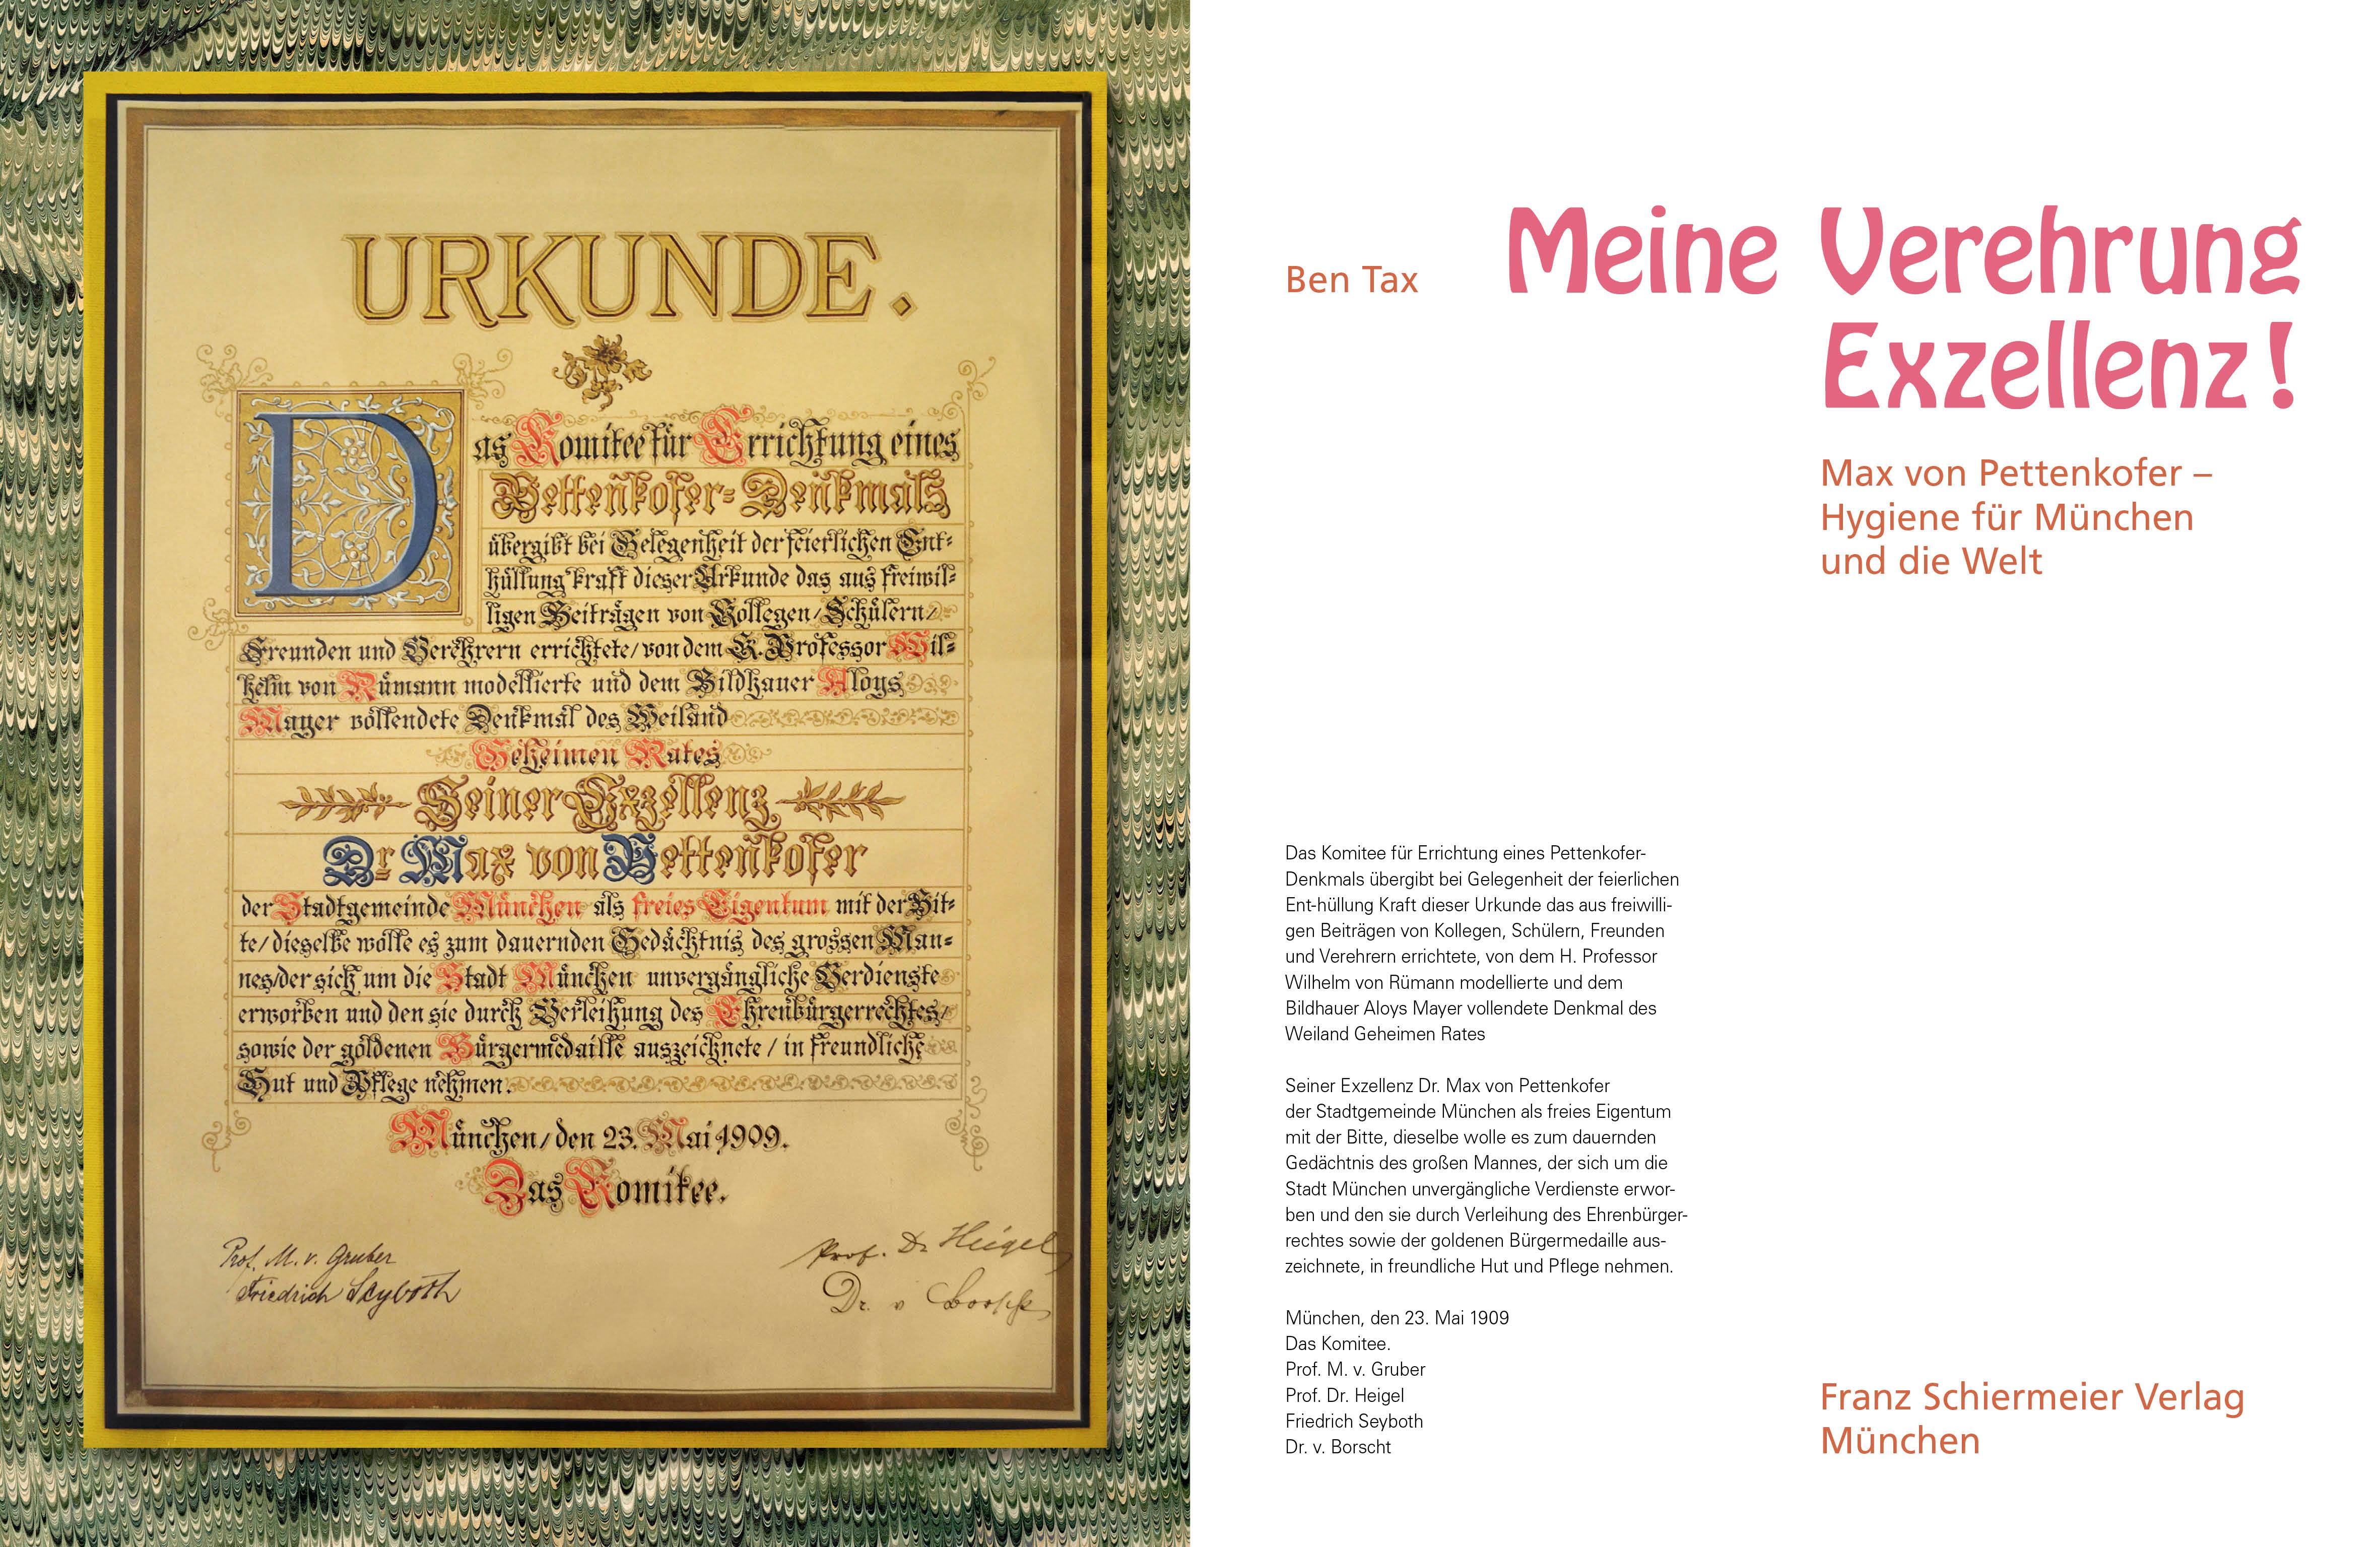 URKUNDE.
Das Komitee für Errichtung eines
Pettenkofer-Denkmals
übergibt bei Gelegenheit der feierlichen Ent-
hüllung kraft dieser Urkunde das aus freiwil-
ligen Beiträgen von Kollegen/Schülern/
Freunden und Verehrern errichtete/von dem K. Professor Wil-
helm von Rümann modellierte und dem Bildhauer Aloys
Mayer vollendete Denkmal des Weiland
Geheimen Rates
Seiner Exzellenz
Dr Max von Pettenkofer
der Stadtgemeinde München als freies Eigentum mit der Bit-
te/dieselbe wolle es zum dauernden Gedächtnis des grossen Man-
nes/der sich um die Stadt München unvergängliche Verdienste
erworben und den sie durch Verleihung des Ehrenbürgerrechtes/
sowie der goldenen Bürgermedaille auszeichnete/in freundliche
Hut und Pflege nehmen.
München/den 23. Mai 1909.
Das Komitee.
Prof. M. v. Gruber
Friedrich Seyboth
Prof. Dr Heigel
Dr. v Borscht
Ben Tax
Meine Verehrung
Exzellenz!
Max von Pettenkofer –
Hygiene für München
und die Welt
Das Komitee für Errichtung eines Pettenkofer-
Denkmals übergibt bei Gelegenheit der feierlichen
Ent-hüllung Kraft dieser Urkunde das aus freiwilli-
gen Beiträgen von Kollegen, Schülern, Freunden
und Verehrern errichtete, von dem H. Professor
Wilhelm von Rümann modellierte und dem
Bildhauer Aloys Mayer vollendete Denkmal des
Weiland Geheimen Rates
Seiner Exzellenz Dr. Max von Pettenkofer
der Stadtgemeinde München als freies Eigentum
mit der Bitte, dieselbe wolle es zum dauernden
Gedächtnis des großen Mannes, der sich um die
Stadt München unvergängliche Verdienste erwor-
ben und den sie durch Verleihung des Ehrenbürger-
rechtes sowie der goldenen Bürgermedaille aus-
zeichnete, in freundliche Hut und Pflege nehmen.
München, den 23. Mai 1909
Das Komitee.
Prof. M. v. Gruber
Prof. Dr. Heigel
Friedrich Seyboth
Dr. v. Borscht
Franz Schiermeier Verlag
München